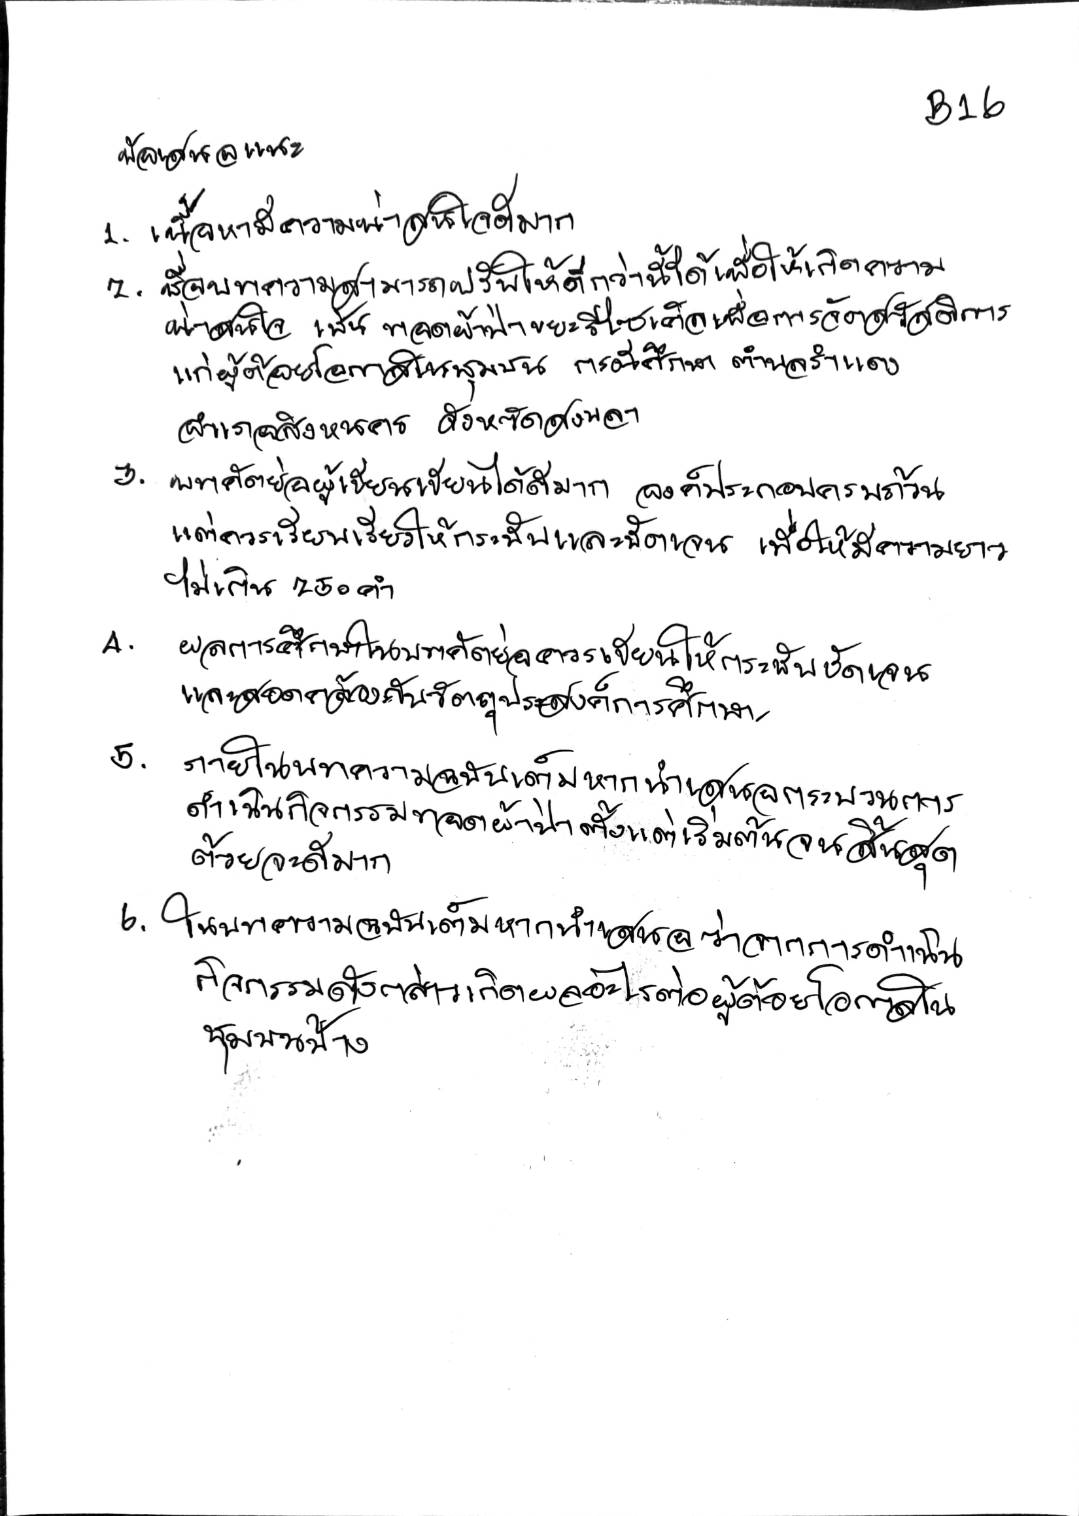 B16
ข้อเสนอแนะ
1. เนื้อหามีความน่าสนใจดีมาก
2. ชื่อบทความสามารถปรับให้ดีกว่านี้ได้เพื่อให้เกิดความ
น่าสนใจ เช่น ทอดผ้าป่าขยะรีไซเคิลเพื่อการจัดสวัสดิการ
แก่ผู้ด้อยโอกาสในชุมชน กรณีศึกษา ตำบลรำแดง
อำเภอสิงหนคร จังหวัดสงขลา
3. บทคัดย่อผู้เขียนเขียนได้ดีมาก องค์ประกอบครบถ้วน
แต่ควรเรียบเรียงให้กระชับและชัดเจน เพื่อให้มีความยาว
ไม่เกิน 250 คำ
4. ผลการศึกษาในบทคัดย่อควรเขียนให้กระชับชัดเจน
และสอดคล้องกับวัตถุประสงค์การศึกษา
5. ภายในบทความฉบับเต็มหากนำเสนอกระบวนการ
ดำเนินกิจกรรมทอดผ้าป่าตั้งแต่เริ่มต้นจนสิ้นสุด
ด้วยจะดีมาก
6. ในบทความฉบับเต็มหากนำเสนอว่าจากการดำเนิน
กิจกรรมดังกล่าวเกิดผลอะไรต่อผู้ด้อยโอกาสใน
ชุมชนบ้าง